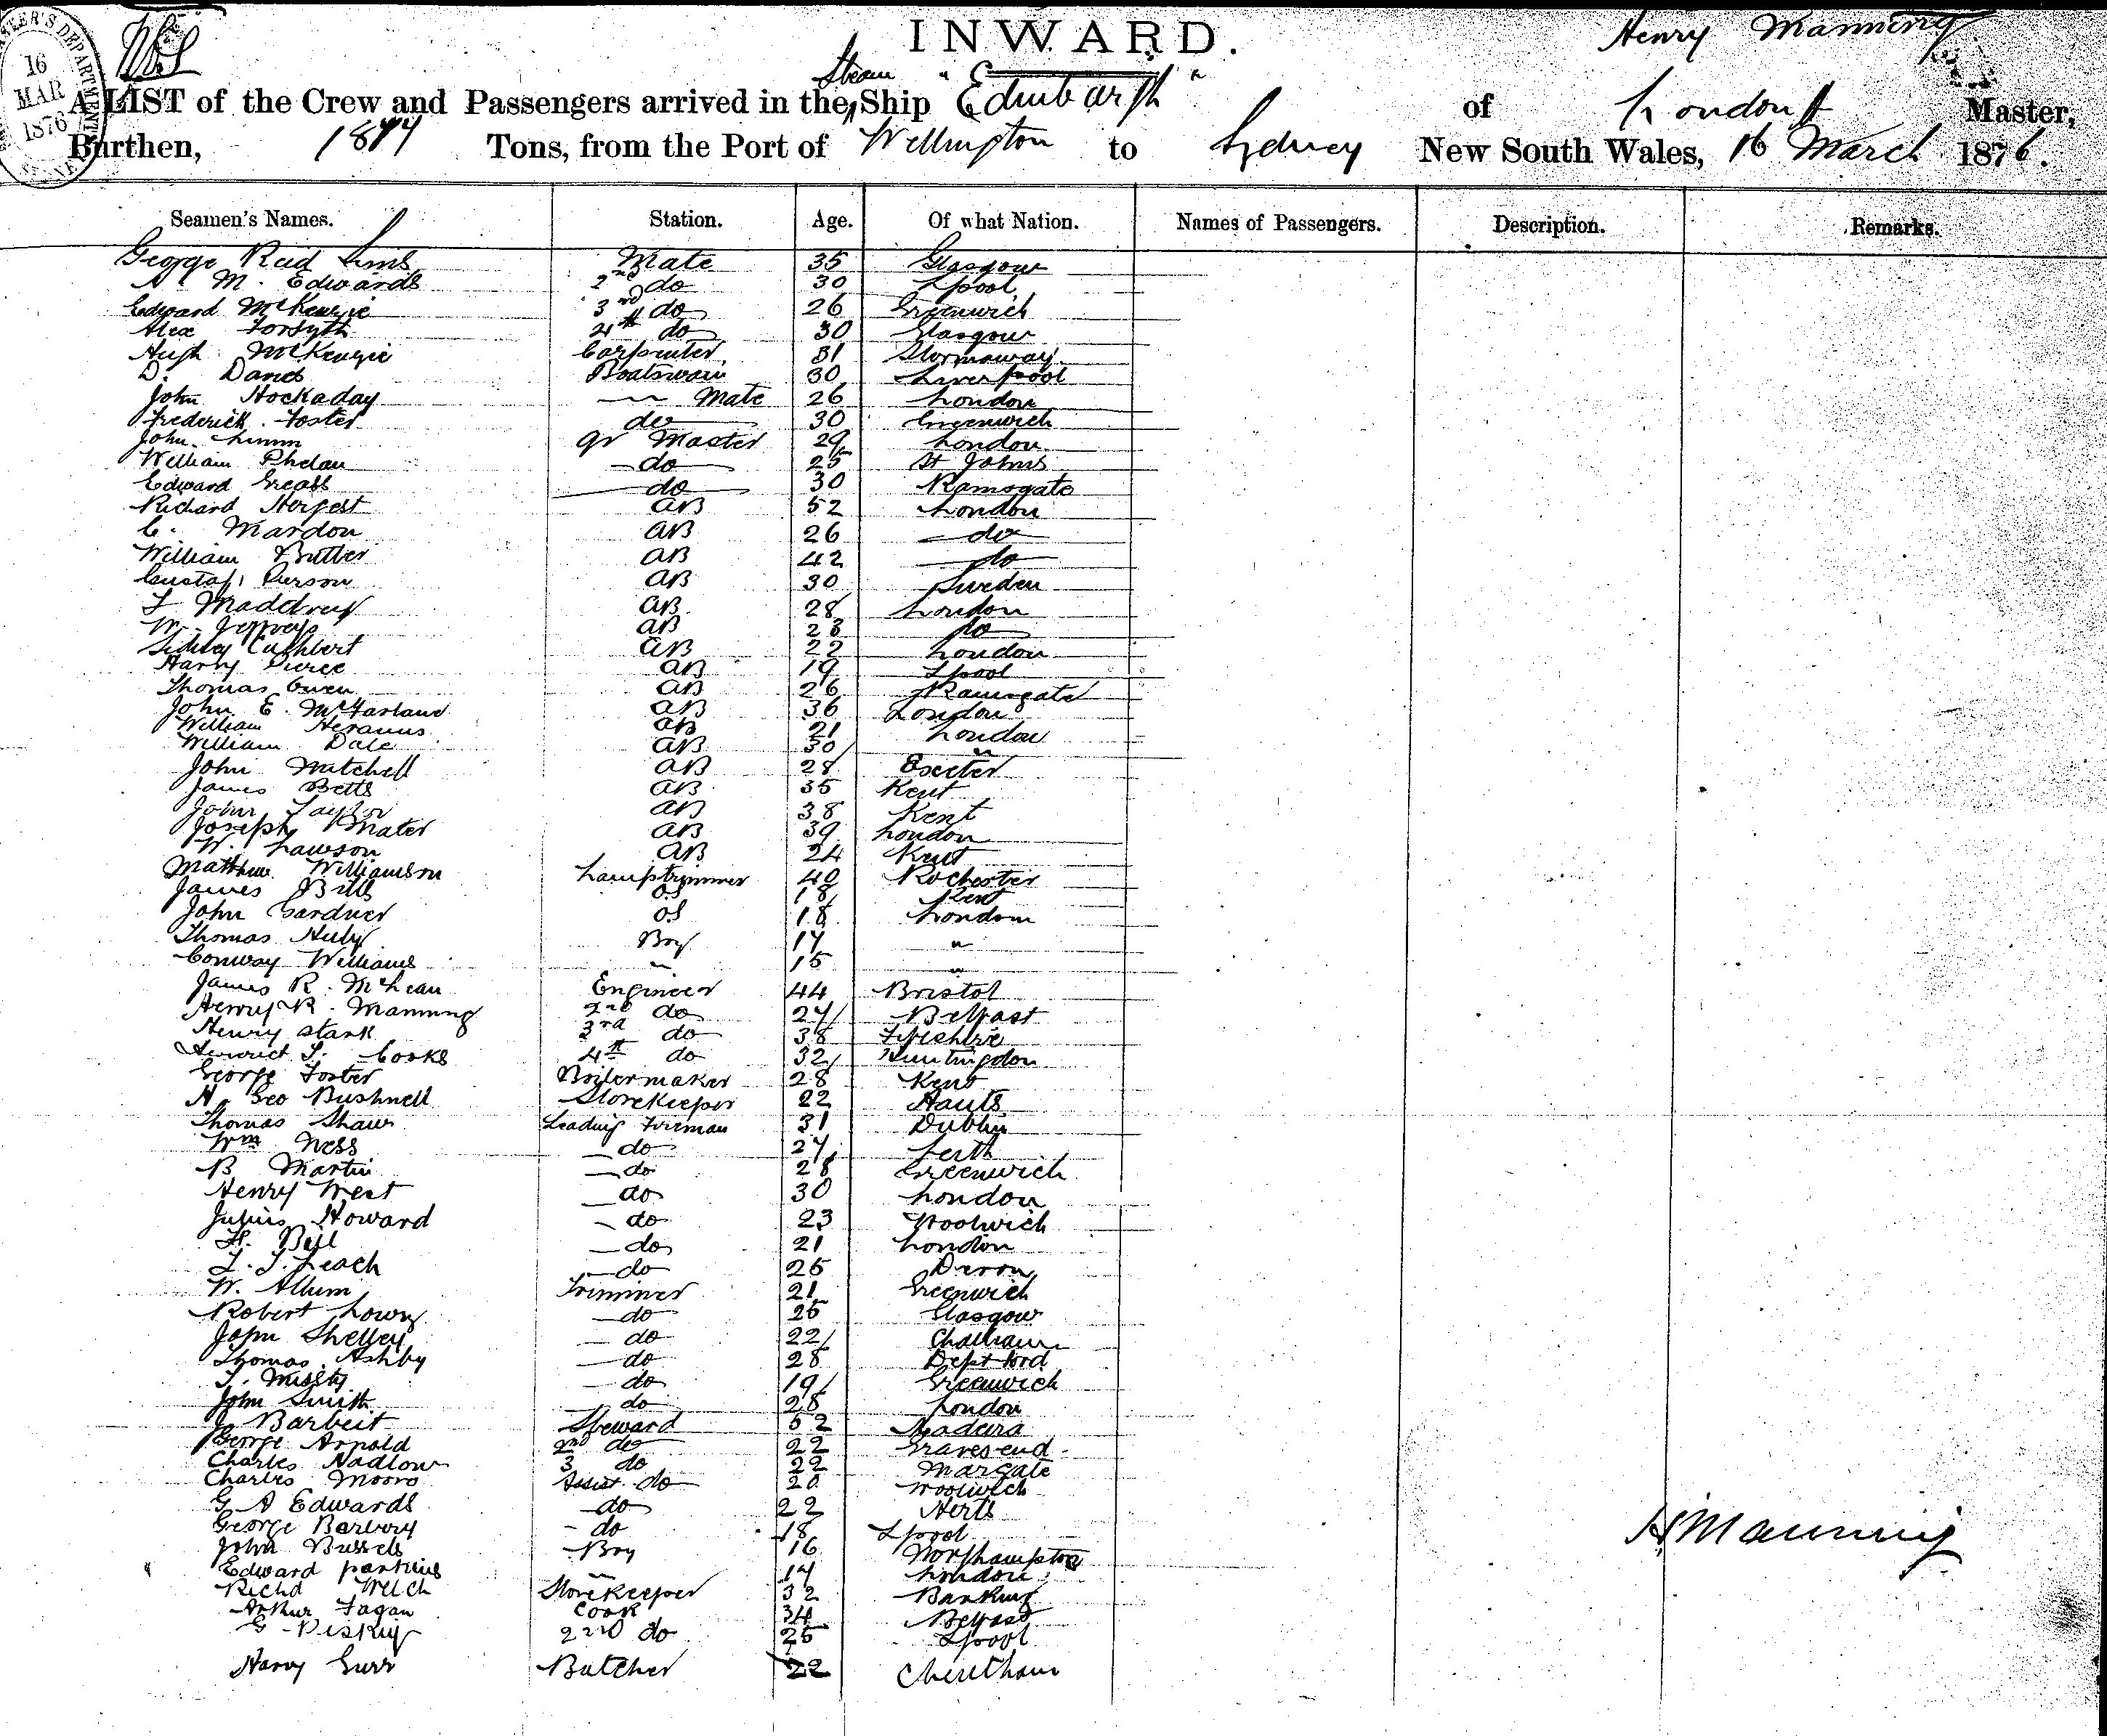 INWARD.
Henry Manning
16 MAR 1876
Steam
A LIST of the Crew and Passengers arrived in the Ship "Edinburgh" of London Master,
Burthen, 1877 Tons, from the Port of Wellington to Sydney New South Wales, 16 March 1876.
Seamen's Names. Station. Age. Of what Nation. Names of Passengers. Description. Remarks.
George Reid Sims Mate 35 Glasgow
M. Edwards 2nd do 30 Lpool
Edward McKenzie 3rd do 26 Greenwich
Alex Forsyth 4th do 30 Glasgow
Hugh McKenzie Carpenter 31 Stornaway
D. David Boatswain 30 Liverpool
John Hockaday " Mate 26 London
Frederick Foster do 30 Greenwich
John Limm Qr Master 29 London
William Phelan do 25 St Johns
Edward Greass do 30 Ramsgate
Richard Hergest AB 52 London
C. Mardon AB 26 do
William Butler AB 42 do
Gustaf Person AB 30 Sweden
AB 28 London
W. Jeffreys AB 28 do
Sidney Cuthbert AB 22 London
Harry Pierce AB 19 Lpool
Thomas Owen AB 26 Ramsgate
John E. McFarland AB 36 London
William AB 21 London
William Dale AB 30 "
John Mitchell AB 28 Exeter
James Betts AB 35 Kent
John Taylor AB 38 Kent
Joseph AB 39 London
W. Lawson AB 24 Kent
Matthew Williamson Lamptrimmer 40 Rochester
James Betts OS 18 Kent
John Gardner OS 18 London
Thomas Boy 17 "
Conway Williams " 15 "
James R. McLean Engineer 44 Bristol
Henry R. Manning 2nd do 27 Belfast
Henry Stark 3rd do 38 Fifeshire
Cooks 4th do 32 Huntingdon
George Foster Boilermaker 28 Kent
H. Geo Bushnell Storekeeper 22 Hants
Thomas Shaw Leading Fireman 31 Dublin
Wm Ness do 27 Leith
B Martin do 28 Greenwich
Henry West do 30 London
Julius Howard do 23 Woolwich
H. Bell do 21 London
T. J. Leach do 25 Devon
W. Allum Trimmer 21 Greenwich
Robert Lowry do 25 Glasgow
John Shelley do 22 Chatham
Thomas Ashby do 28 Deptford
T. do 19 Greenwich
John Smith do 28 London
J Barbeit Steward 52 Madeira
George Arnold 2nd do 22 Gravesend
Charles Hadlow 3 do 22 Margate
Charles Moore Assist do 20 Woolwich
G A Edwards do 22 Herts
George Barbery do 18 Lpool
John Bussels Boy 16 Northampton
Edward Parkins " 17 London
Richd Welch Storekeeper 32
Arthur Fagan Cook 34 Belfast
G 2nd do 25 Lpool
Harry Gurr Butcher 22
H Manning